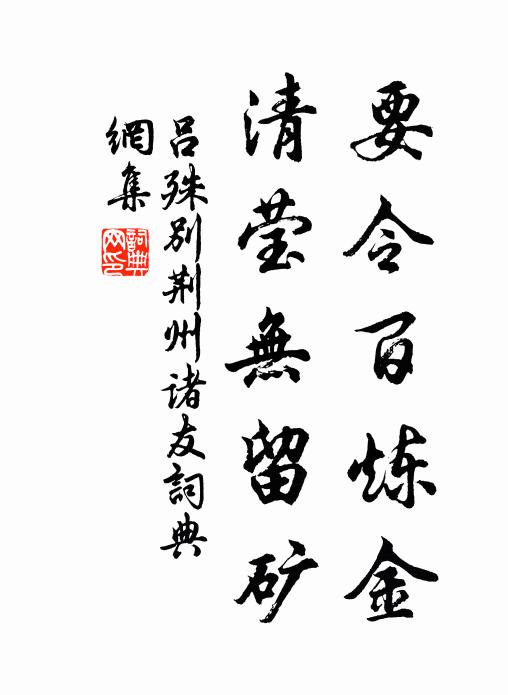 要令百炼金
清莹無留矿
吕殊别荆州诸友詞典
網集
詞典网印